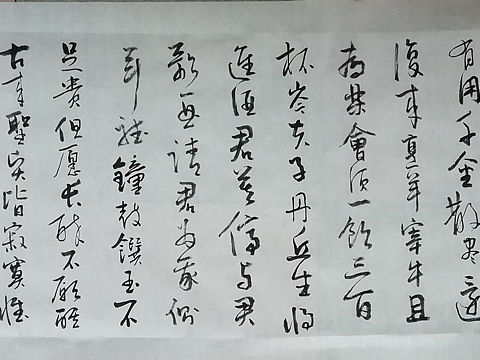 有用千金散尽還
復来烹羊宰牛且
為樂會须一飲三百
杯岑夫子丹丘生将
進酒君莫停与君
歌一曲請君为我侧
耳聽鐘鼓饌玉不
足貴但愿长醉不願醒
古来聖賢皆寂寞惟